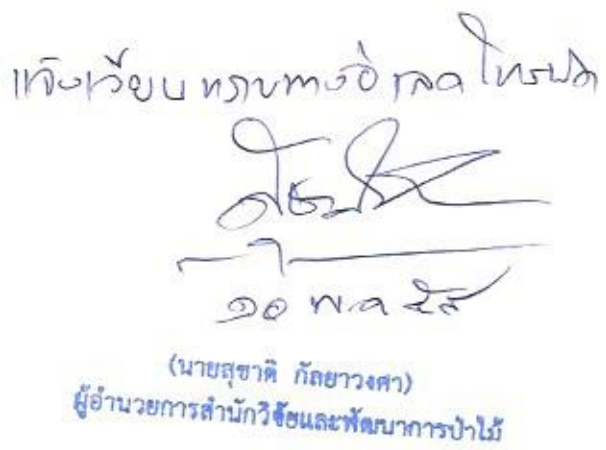 แจ้งเวียนทราบทางอิเลคโทรนิค
๑๐ พ.ค ๕๕
(นายสุชาติ กัลยาวงศา)
ผู้อำนวยการสำนักวิจัยและพัฒนาการป่าไม้